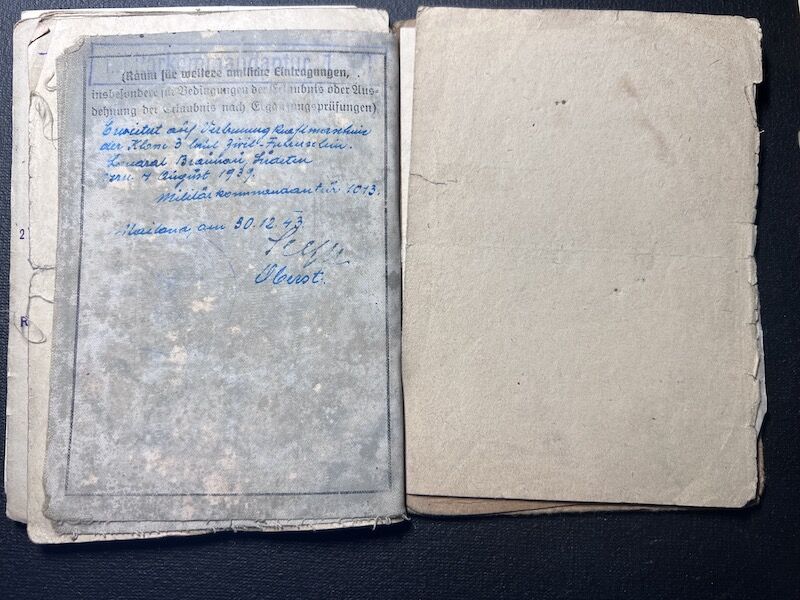 (Raum für weitere amtliche Eintragungen,
insbesondere für Bedingungen der Erlaubnis oder Aus-
dehnung der Erlaubnis nach Ergänzungsprüfungen)
Erweitert auf Verbrennungskraftmaschine
der Klasse 3 laut Zivil-Führerschein.
Landrat Braunau, Sudeten
4 August 1939.
Militärkommandantur 1013.
Mailand, am 30.12.43
Oberst.
2
R